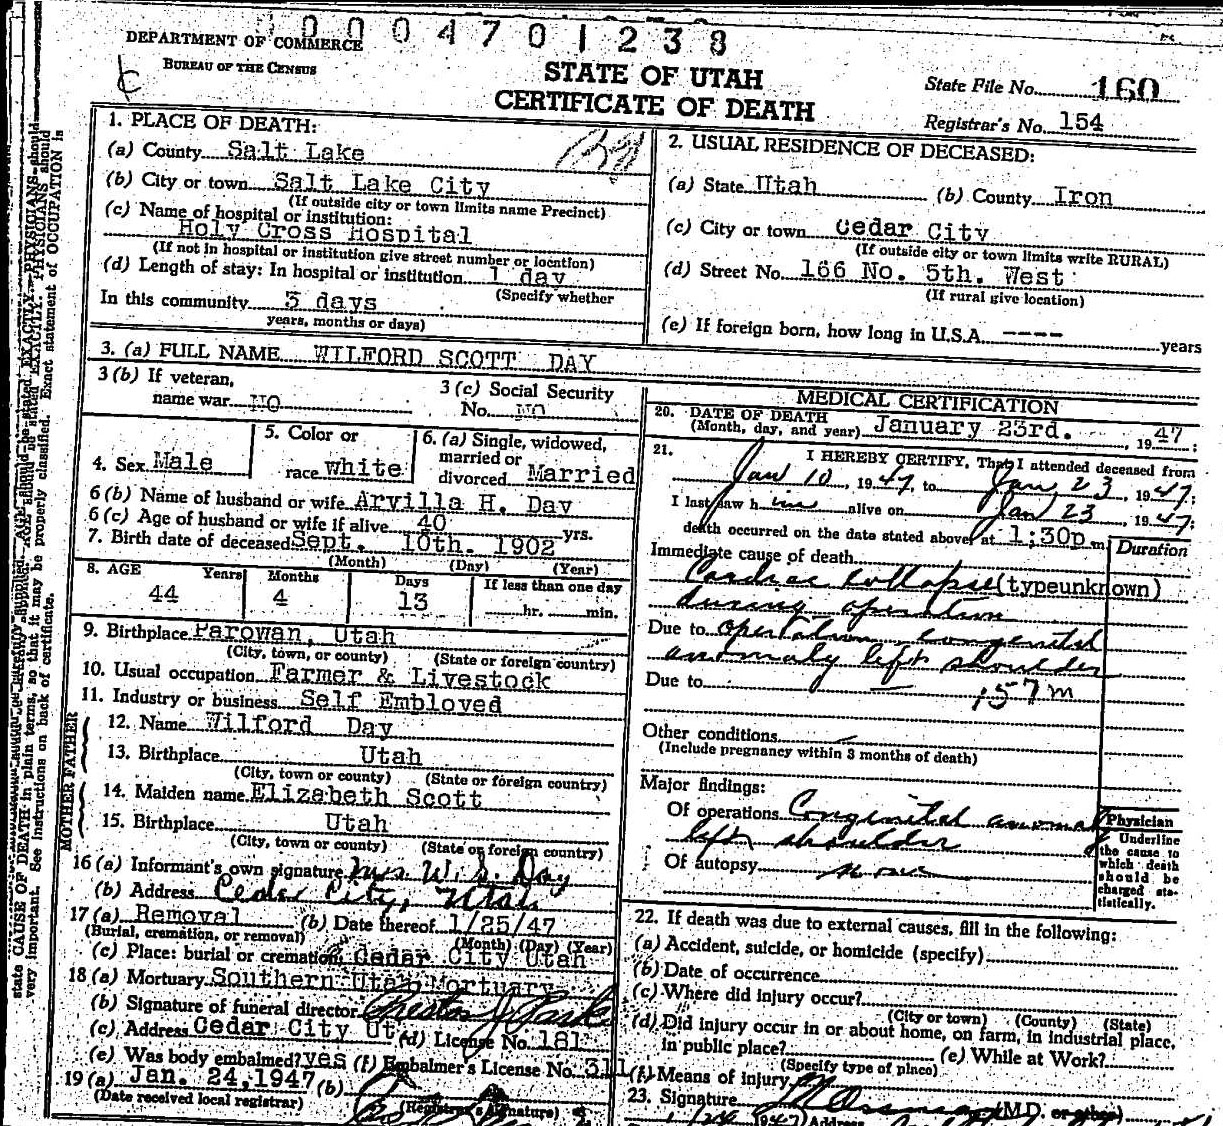 0004701238
DEPARTMENT OF COMMERCE
BUREAU OF THE CENSUS
STATE OF UTAH
CERTIFICATE OF DEATH
State File No. 160
Registrar's No. 154
1. PLACE OF DEATH:
(a) County Salt Lake
(b) City or town Salt Lake City
(If outside city or town limits name Precinct)
(c) Name of hospital or institution:
Holy Cross Hospital
(If not in hospital or institution give street number or location)
(d) Length of stay: In hospital or institution 1 day
(Specify whether
In this community 3 days
years, months or days)
2. USUAL RESIDENCE OF DECEASED:
(a) State Utah (b) County Iron
(c) City or town Cedar City
(If outside city or town limits write RURAL)
(d) Street No. 166 No. 5th. West
(If rural give location)
(e) If foreign born, how long in U.S.A. ---- years
3. (a) FULL NAME WILFORD SCOTT DAY
3 (b) If veteran,
name war NO
3 (c) Social Security
No. NO
4. Sex Male
5. Color or
race White
6. (a) Single, widowed,
married or
divorced Married
6 (b) Name of husband or wife Arvilla H. Day
6 (c) Age of husband or wife if alive 40 yrs.
7. Birth date of deceased Sept. 10th. 1902
(Month) (Day) (Year)
8. AGE Years Months Days If less than one day
44 4 13 hr. min.
9. Birthplace Parowan, Utah
(City, town, or county) (State or foreign country)
10. Usual occupation Farmer & Livestock
11. Industry or business Self Employed
FATHER
12. Name Wilford Day
13. Birthplace Utah
(City, town or county) (State or foreign country)
MOTHER
14. Maiden name Elizabeth Scott
15. Birthplace Utah
(City, town or county) (State or foreign country)
16 (a) Informant's own signature Mrs. W. S. Day
(b) Address Cedar City, Utah
17 (a) Removal (b) Date thereof 1/25/47
(Burial, cremation, or removal) (Month) (Day) (Year)
(c) Place: burial or cremation Cedar City Utah
18 (a) Mortuary Southern Utah Mortuary
(b) Signature of funeral director
(c) Address Cedar City Ut (d) License No. 181
(e) Was body embalmed? yes (f) Embalmer's License No. 311
19 (a) Jan. 24, 1947 (b)
(Date received local registrar) (Registrar's Signature)
MEDICAL CERTIFICATION
20. DATE OF DEATH
(Month, day, and year) January 23rd. , 1947;
21. I HEREBY CERTIFY, That I attended deceased from
Jan 10, 1947, to Jan 23, 1947;
I last saw him alive on Jan 23, 1947;
death occurred on the date stated above, at 1:30p m. Duration
Immediate cause of death
Cardiac collapse (typeunknown)
during operation
Due to operation congenital
anomaly left shoulder
Due to — 157m
Other conditions
(Include pregnancy within 3 months of death)
Major findings:
Of operations Congenital anomaly
left shoulder
Of autopsy none
Physician
Underline
the cause to
which death
should be
charged sta-
tistically.
22. If death was due to external causes, fill in the following:
(a) Accident, suicide, or homicide (specify)
(b) Date of occurrence
(c) Where did injury occur?
(City or town) (County) (State)
(d) Did injury occur in or about home, on farm, in industrial place,
in public place? (e) While at Work?
(Specify type of place)
(f) Means of injury
23. Signature (M.D. or other)
Address
state CAUSE OF DEATH in plain terms, so that it may be properly classified. Exact statement of OCCUPATION is
very important. See instructions on back of certificate.